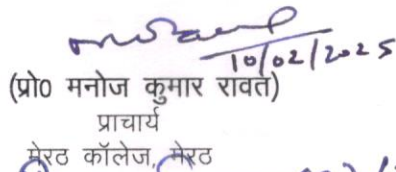 10/02/2025
(प्रो0 मनोज कुमार रावत)
प्राचार्य
मेरठ कॉलेज, मेरठ